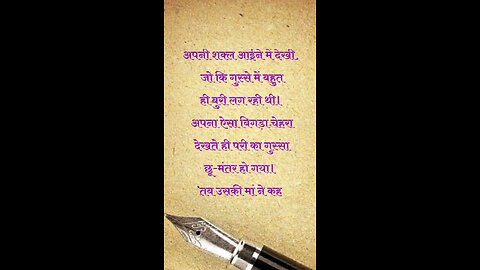 अपनी शक्ल आईने में देखी.
जो कि गुस्से में बहुत
ही बुरी लग रही थी।
अपना ऐसा बिगड़ा चेहरा
देखते ही परी का गुस्सा
छू-मंतर हो गया।
तब उसकी मां ने कह